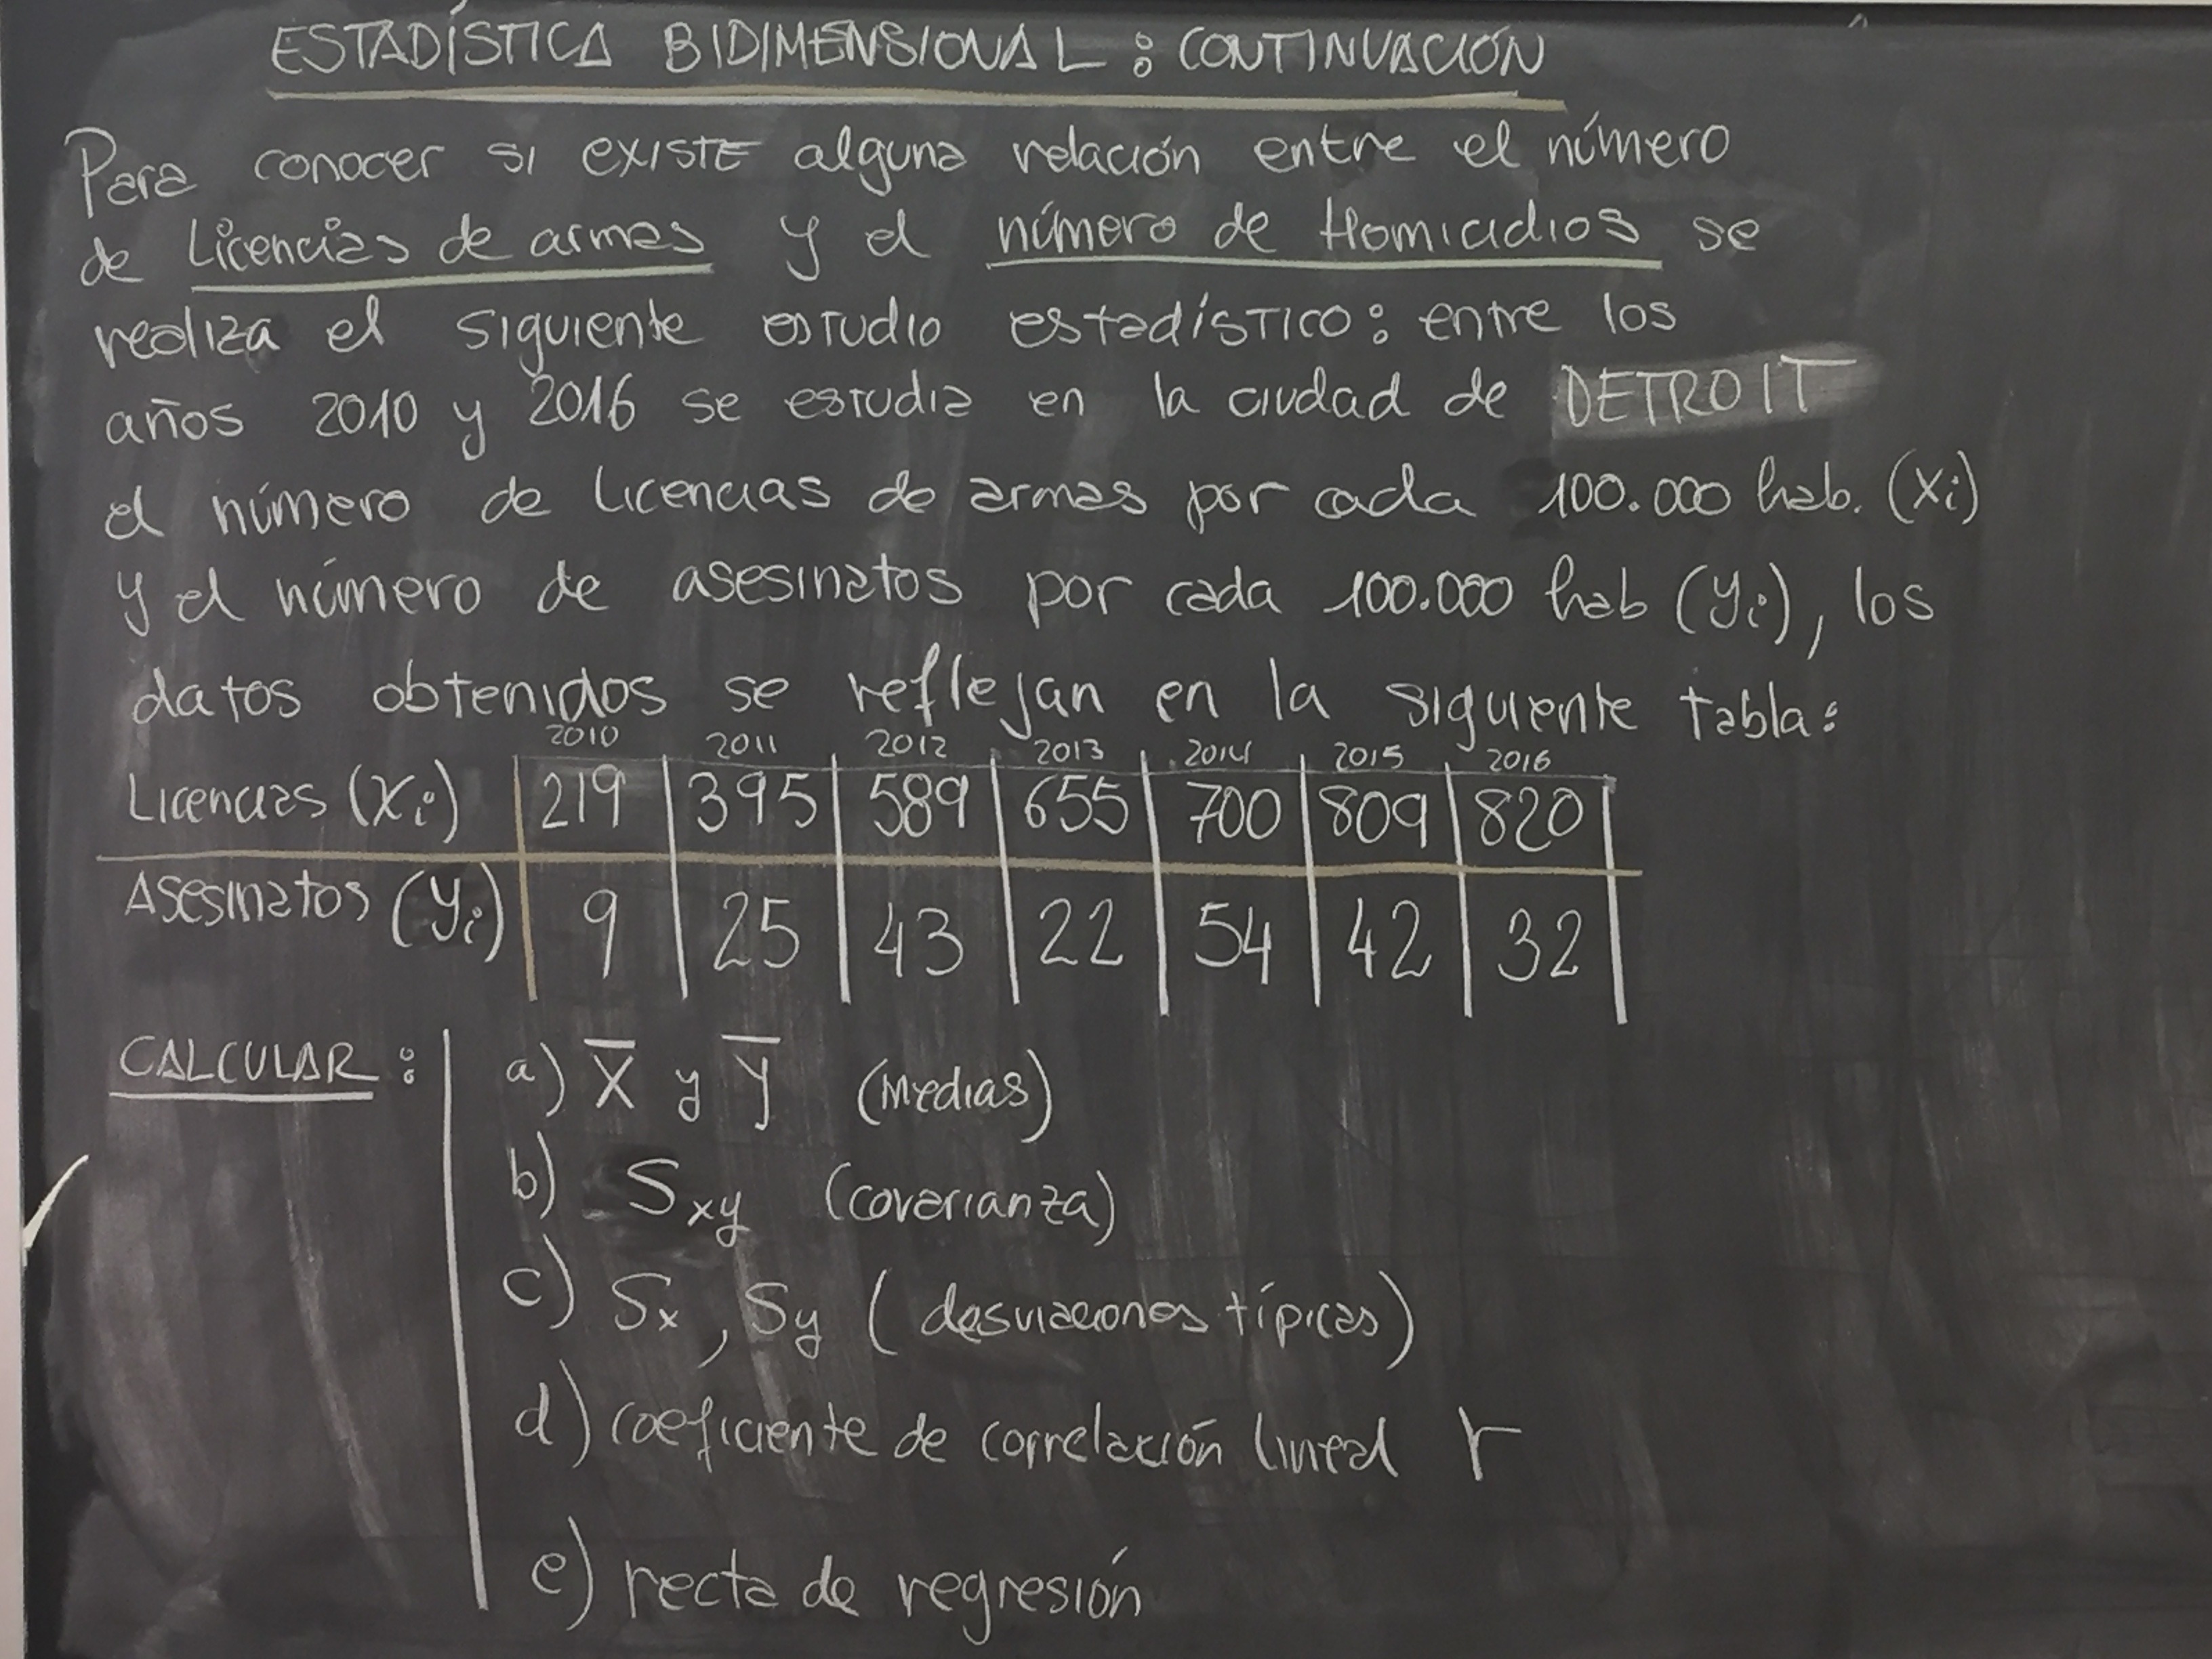 ESTADÍSTICA BIDIMENSIONAL : CONTINUACIÓN
Para conocer si EXISTE alguna relación entre el número
de Licencias de armas y el número de Homicidios se
realiza el siguiente estudio estadístico: entre los
años 2010 y 2016 se estudia en la ciudad de DETROIT
el número de Licencias de armas por cada 100.000 hab. (xi)
y el número de asesinatos por cada 100.000 hab (yi), los
datos obtenidos se reflejan en la siguiente tabla:
2010 2011 2012 2013 2014 2015 2016
Licencias (xi) 219 395 589 655 700 809 820
Asesinatos (yi) 9 25 43 22 54 42 32
CALCULAR : a) X̅ y Y̅ (Medias)
b) Sxy (covarianza)
c) Sx, Sy (desviaciones típicas)
d) coeficiente de correlación lineal r
e) recta de regresión